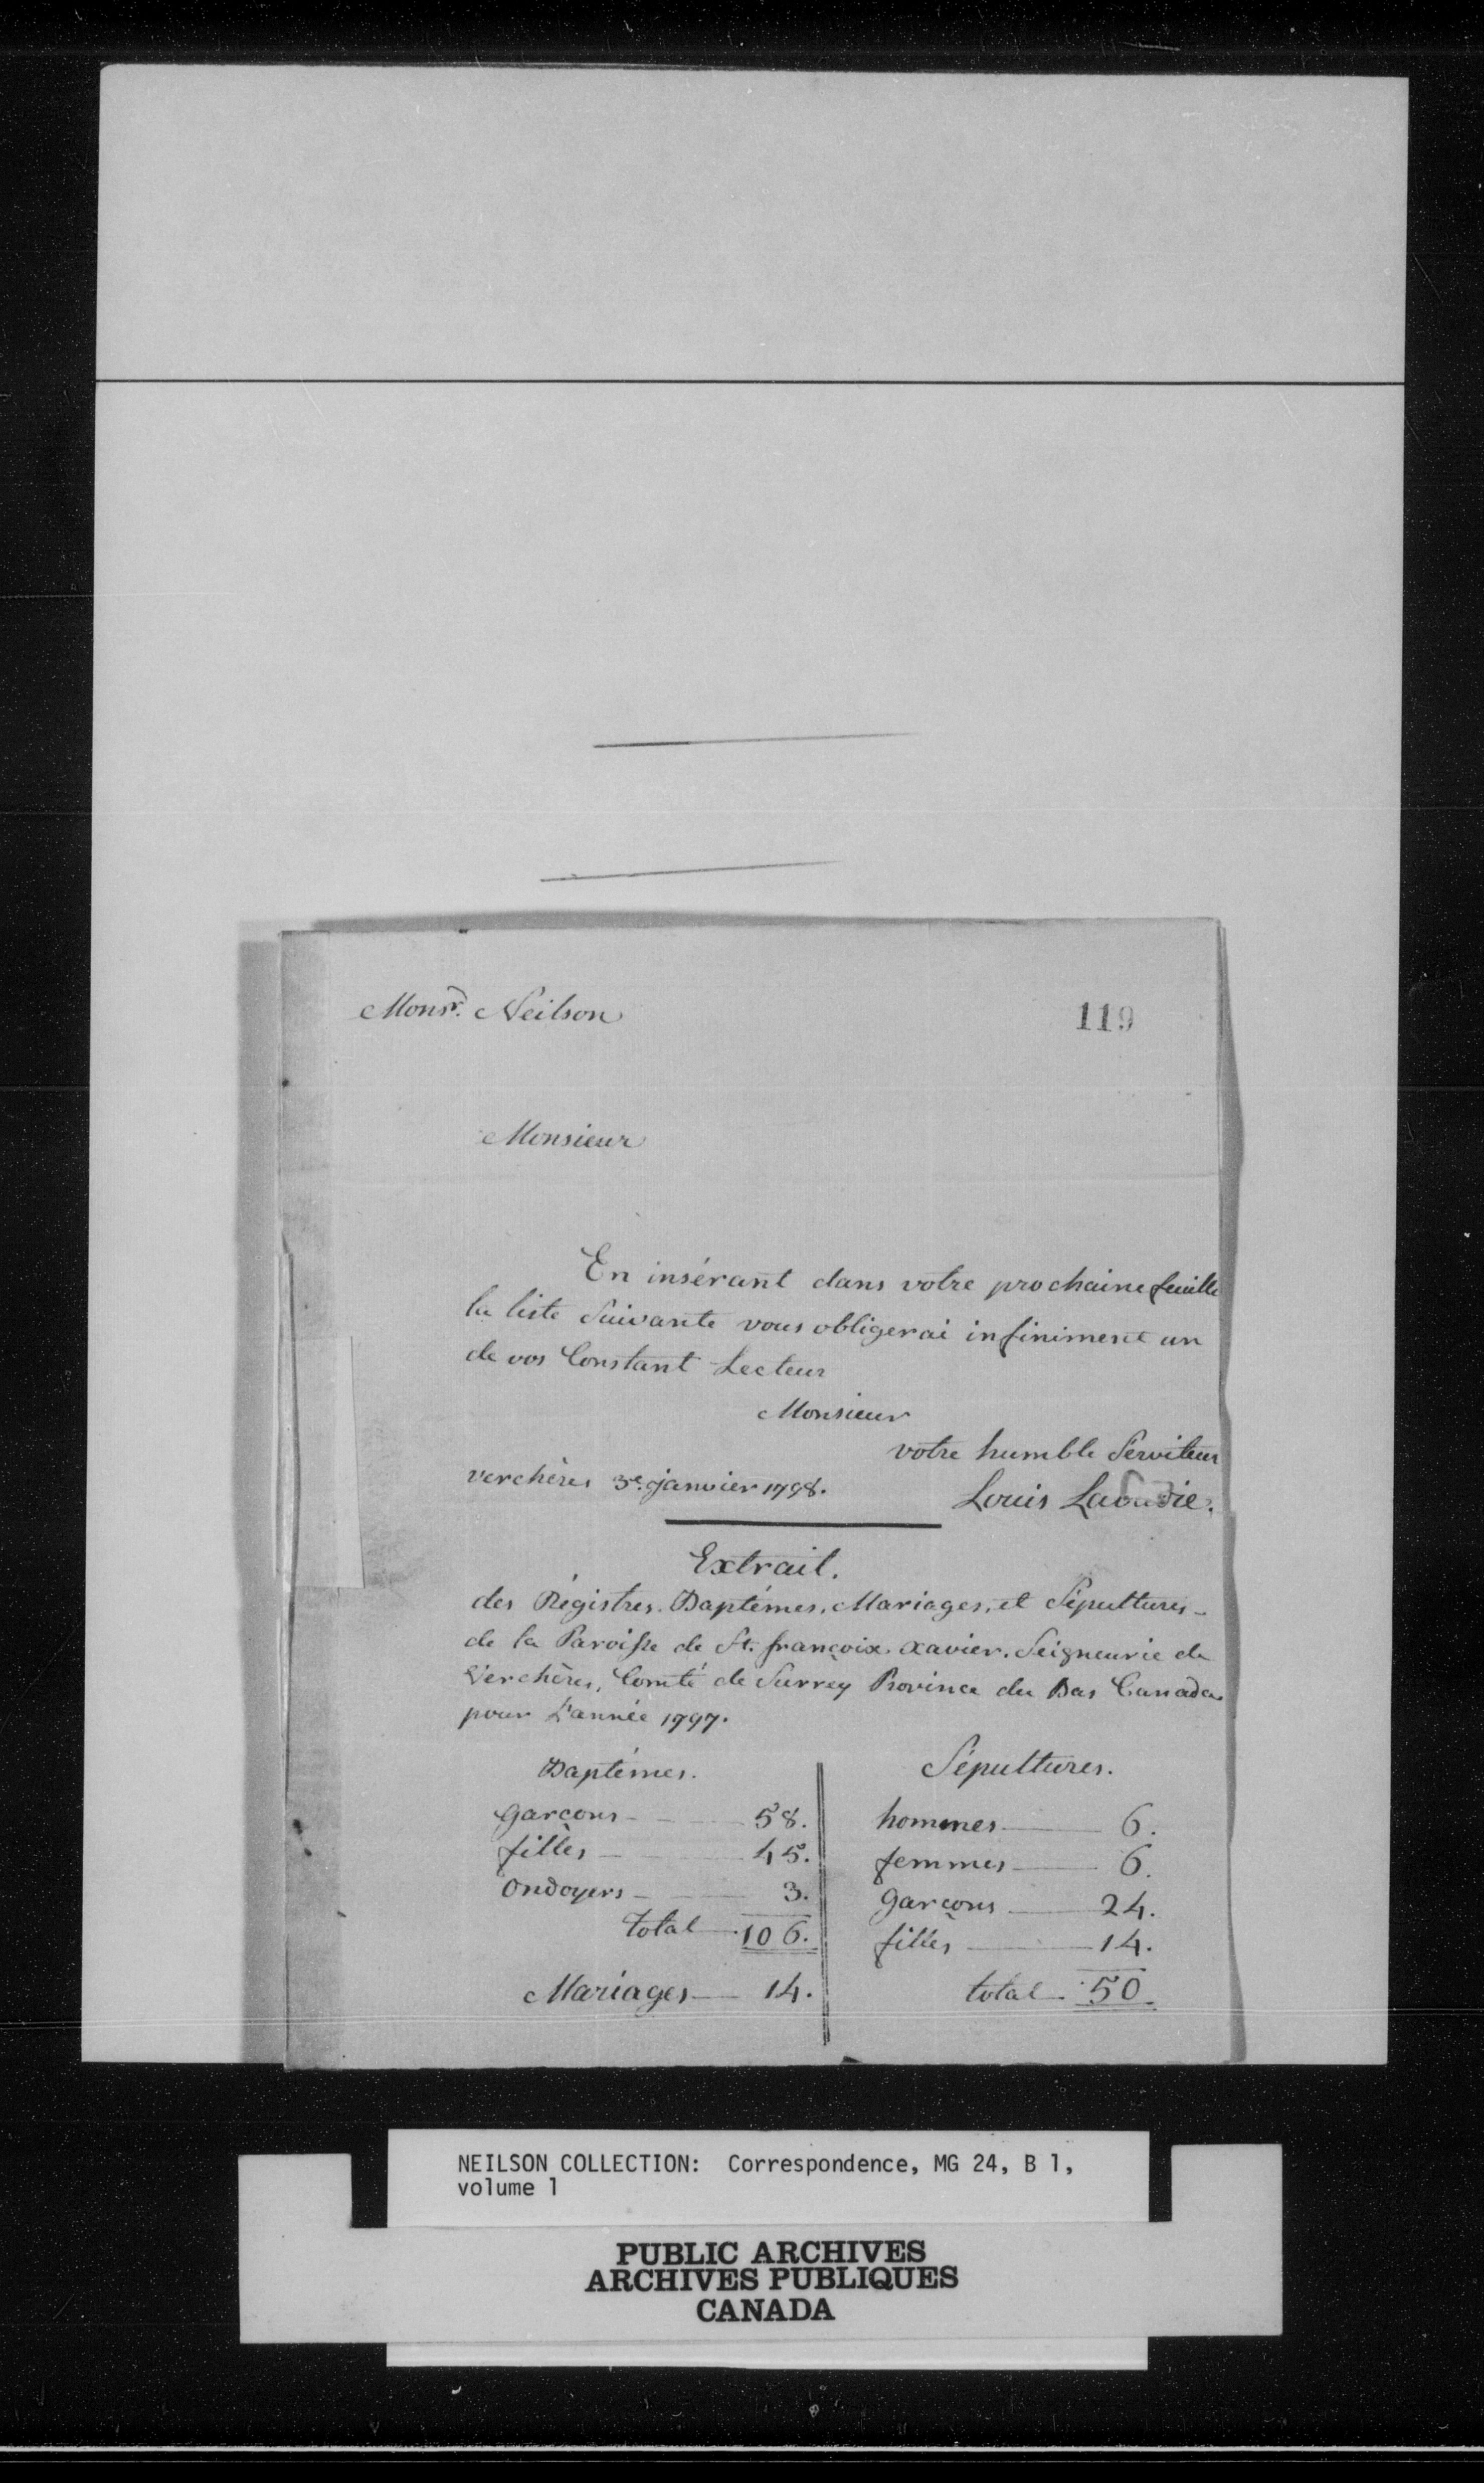 Monsr. Neilson
119
Monsieur
En insérant dans votre prochaine feuille
la liste Suivante vous obligerai infiniment un
de vos Constant Lecteur
Monsieur
votre humble Serviteur
verchères 3e. janvier 1798.
Louis
Extrait.
des Régistres. Baptémes, Mariages, et Sépultures
de la Paroisse de St. françoix. Xavier. Seigneurie de
Verchères, Comté de Surrey Province du Bas Canada
pour L'année 1797.
Baptémes.
garcons 58.
filles 45.
Ondoyers 3.
total 106.
Mariages 14.
Sépultures.
hommes 6.
femmes 6.
garcons 24.
filles 14.
total 50.
NEILSON COLLECTION: Correspondence, MG 24, B 1,
volume 1
PUBLIC ARCHIVES
ARCHIVES PUBLIQUES
CANADA